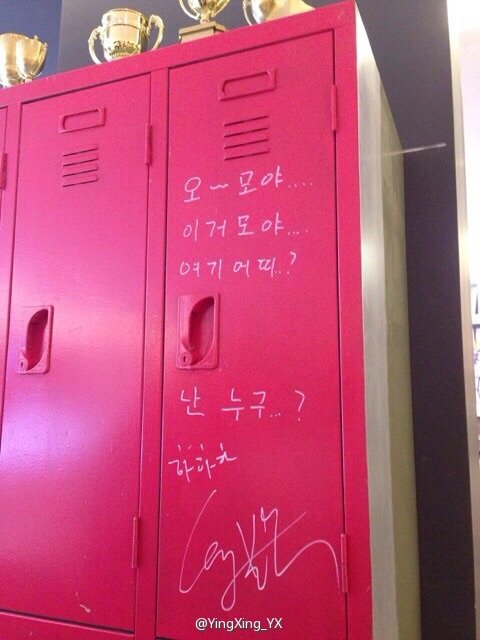 오~모야....
이거모야....
여기어띠..?
난 누구...?
하하하
@YingXing_YX